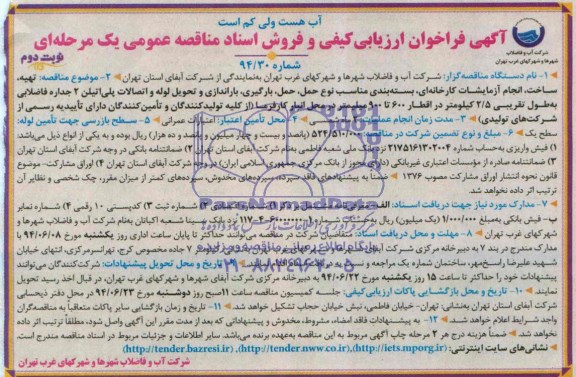 آب هست ولی کم است
آگهی فراخوان ارزیابی کیفی و فروش اسناد مناقصه عمومی یک مرحله‌ای
شماره ۹۴/۳۰
نوبت دوم
شرکت آب و فاضلاب
شهرها و شهرکهای غرب تهران
۱- نام دستگاه مناقصه‌گزار: شرکت آب و فاضلاب شهرها و شهرکهای غرب تهران به‌نمایندگی از شرکت آبفای استان تهران ۲- موضوع مناقصه: تهیه،
ساخت، انجام آزمایشات کارخانه‌ای، بسته‌بندی مناسب نوع حمل، حمل، بارگیری، باراندازی و تحویل لوله و اتصالات پلی‌اتیلن ۲ جداره فاضلابی
به‌طول تقریبی ۲/۵ کیلومتر در اقطار ۶۰۰ تا ۹۰۰ میلیمتر در محل انبار کارفرما (از کلیه تولیدکنندگان و تأمین‌کنندگان دارای تأییدیه رسمی از
شرکت‌های تولیدی) ۳- مدت زمان انجام ۴- محل تأمین اعتبار: اعتبارات عمرانی ۵- سطح بازرسی جهت تأمین لوله:
سطح یک ۶- مبلغ و نوع تضمین شرکت در ده هزار) ریال بوده و به یکی از انواع ذیل می‌باشد:
۱) فیش واریزی به‌حساب شماره ۲۱۷۵۱۶۱۳۰۲۰۰۴ نزد بانک ملی شعبه فاطمی به‌نام شرکت آبفای استان تهران ۲) ضمانتنامه بانکی در وجه شرکت آبفای استان تهران
۳) ضمانتنامه صادره از مؤسسات اعتباری غیربانکی (دارای مجوز از بانک مرکزی جمهوری اسلامی ایران) در وجه شرکت آبفای استان تهران ۴) اوراق مشارکت- موضوع
قانون نحوه انتشار اوراق مشارکت مصوب ۱۳۷۶ ضمناً به پیشنهادهای فاقد سپرده، سپرده‌های مخدوش، سپرده‌های کمتر از میزان مقرر، چک شخصی و نظایر آن
ترتیب اثر داده نخواهد شد.
۷- مدارک مورد نیاز جهت دریافت اسناد: الف- ۳) شماره ثبت ۳) کدپستی ۱۰ رقمی ۴) شماره نمابر
ب- فیش بانکی به‌مبلغ ۱/۰۰۰/۰۰۰ (یک میلیون) ریال به‌حساب نزد بانک سینا شعبه اکباتان به‌نام شرکت آب و فاضلاب شهرها و
شهرکهای غرب تهران ۸- مهلت و محل دریافت اسناد: متقاضیان شرکت در مناقصه می‌توانند حداکثر تا پایان ساعت اداری روز یکشنبه مورخ ۹۴/۰۶/۰۸ با
مدارک مندرج در بند ۷ به دبیرخانه مرکزی شرکت آبفای ۷ جاده مخصوص کرج، تهرانسر مرکزی، انتهای خیابان
شهید علیرضا راسخ‌مهر، ساختمان شماره یک مراجعه و نسبت به تاریخ و محل تحویل پیشنهادات: شرکت‌کنندگان می‌توانند
پیشنهادات خود را حداکثر تا ساعت ۱۵ روز یکشنبه مورخ ۹۴/۰۶/۲۲ به دبیرخانه مرکزی شرکت آبفای شهرها و شهرکهای غرب تهران، در قبال اخذ رسید تحویل
نمایند ۱۰- تاریخ و محل بازگشایی پاکات ارزیابی کیفی: جلسه کمیسیون مناقصه ساعت ۱۱ صبح روز دوشنبه مورخ ۹۴/۰۶/۲۳ در محل دفتر ذیحسابی
شرکت آبفای استان تهران به‌نشانی: تهران- خیابان فاطمی، نبش خیابان حجاب تشکیل خواهد شد. ۱۱- تاریخ و زمان بازگشایی سایر پاکات متعاقباً به مناقصه‌گران
واجد شرایط اعلام خواهد شد. ۱۲- به پیشنهادات فاقد امضاء، مشروط، مخدوش و پیشنهاداتی که بعد از مدت مقرر این آگهی واصل شود، مطلقاً ترتیب اثر داده
نخواهد شد. ضمناً هزینه درج هر ۲ مرحله چاپ آگهی مربوط به این مناقصه به‌عهده برنده می‌باشد. سایر اطلاعات و جزئیات مربوط در اسناد مناقصه مندرج است.
نشانی‌های سایت اینترنتی: (http://iets.mporg.ir)، (http://tender.nww.co.ir)، (http://tender.bazresi.ir)
شرکت آب و فاضلاب شهرها و شهرکهای غرب تهران
۰۲۱-۸۸۳۴۹۶۷۰-۵